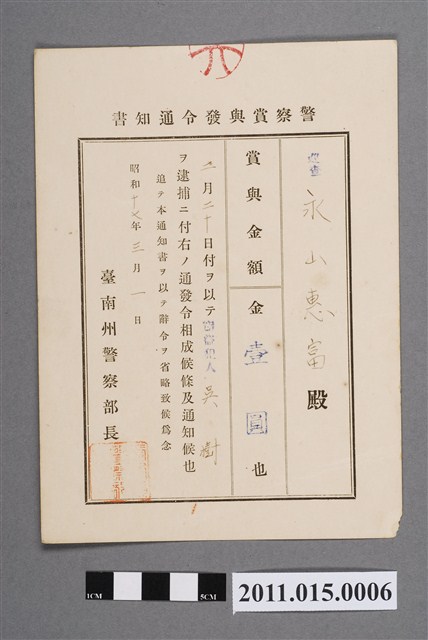 警察賞與發令通知書
巡查 永山惠富 殿
賞與金額 金壹圓也
二月二十日付ヲ以テ 吳 樹
ヲ逮捕ニ付右ノ通發令相成候條及通知候也
追テ本通知書ヲ以テ辭令ヲ省略致候爲念
昭和十七年三月一日
臺南州警察部長
1CM
5CM
2011.015.0006